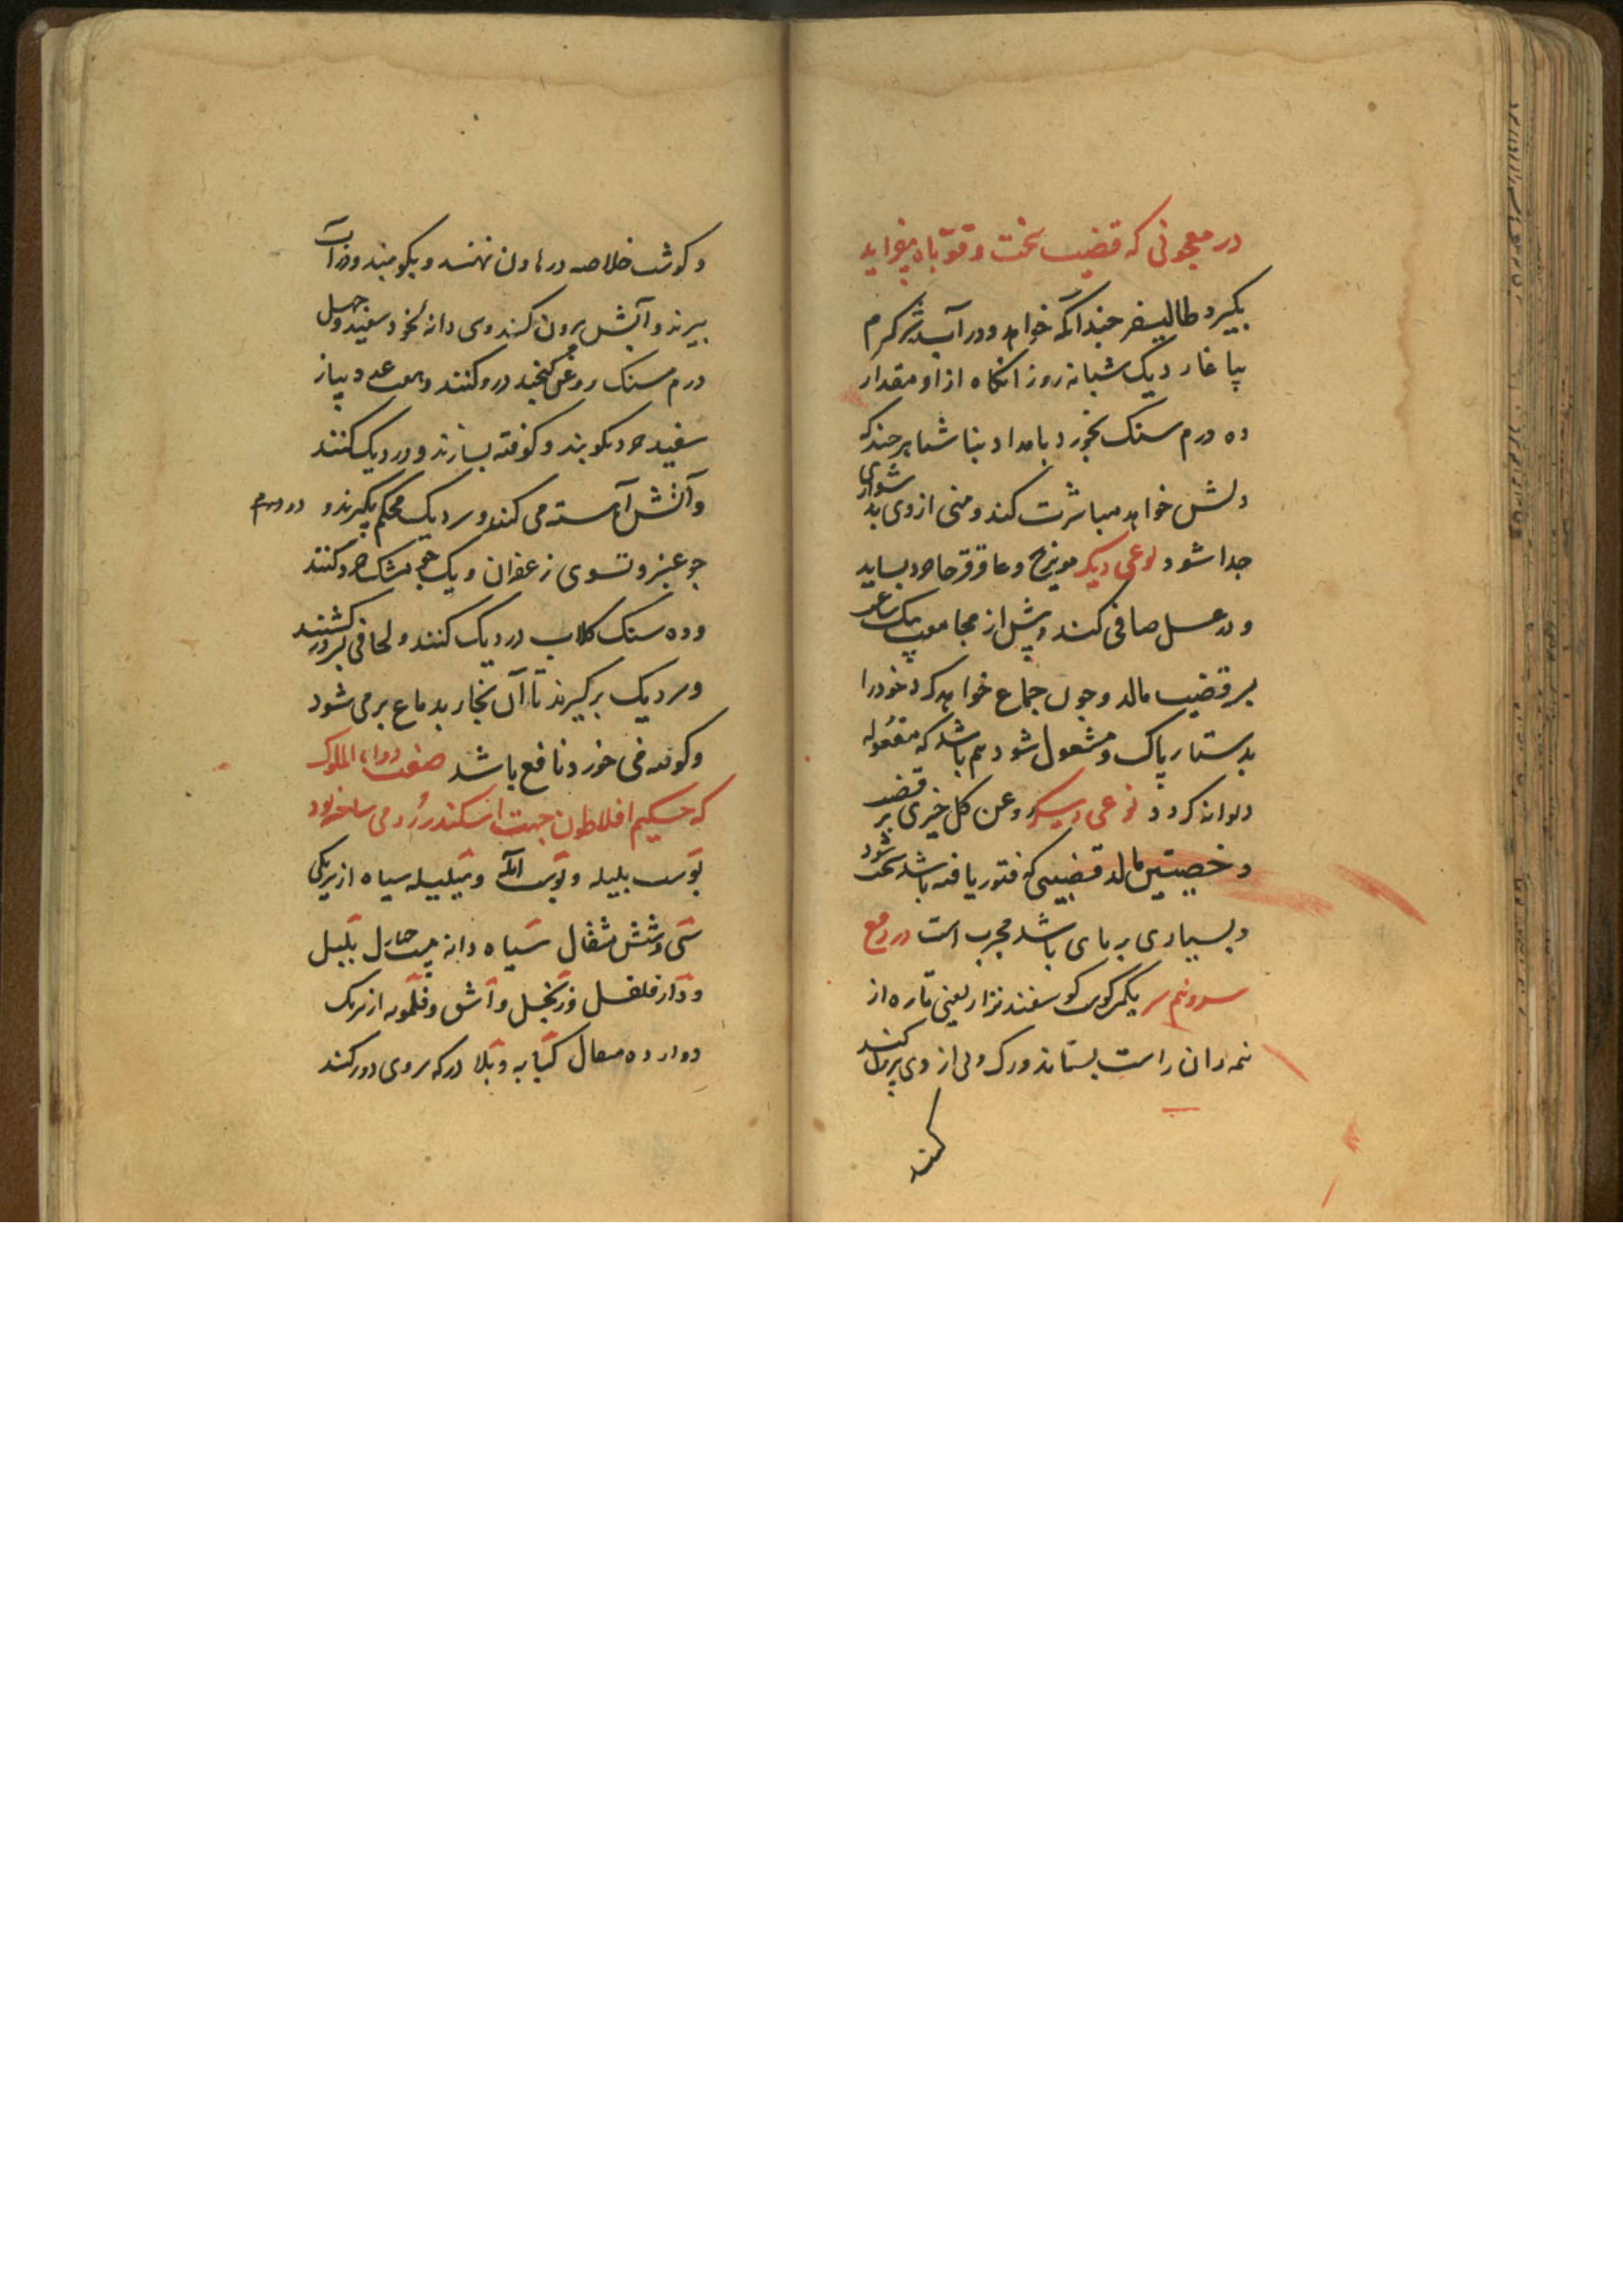 در معجونی که قضیب سخت و قوة باه بیفزاید
بکیرد طالیسفر چندانکه خواهد و در آب تره کرم
بیاغارد یک شبانه روز انکاه از او مقدار
ده درم سنک بخورد بامداد بناشتا هر چند که
دلش خواهد مباشرت کند و منی از وی بدشواری
جدا شود نوعی دیکر مویزج و عاقرقرحا خرد بساید
و در عسل صافی کند و پیش از مجامعت یک ساعت
بر قضیب مالد و چون جماع خواهد کرد خود را
بدستار پاک و مشغول شود هم باشد که مفعوله
دیوانه کردد نوعی دیکر روغن کل خیری بر قضیب
و خصیتین مالد قضیبی که فتور یافته باشد سخت شود
و بسیاری بر پای باشد مجرب است در دفع
یکیر کوسفند نزار یعنی تازه از
نمه ران راست بستاند ورک وپی از وی برون کنند
کند
و کوشت خلاصه در هاون نهند و بکوبند و در آب
بپزند و آبش برون کنند وسی دانه نخود سفید و چهل
درم سنک روغن کنجد درو کنند و هفت عدد پیاز
سفید خرد بکوبند و کوفته بسازند و در دیک کنند
و آتش آهسته می کنند و سر دیک محکم بکیرند و دو درم
جو عنبر و تسوی زعفران و یک جو مشک خرد کنند
و ده سنک کلاب در دیک کنند و لحافی بر در کشند
و سر دیک برکیرند تا آن بخار بدماغ بر می شود
و کوفته می خورد نافع باشد صفت دواء الملوک
که حکیم افلاطون جهت اسکندر رومی ساخته بود
پوست بلیله و پوست آمله و هلیله سیاه از هر یکی
سی و شش مثقال سیاه دانه بیست بلبل
و دار فلفل و زنجبیل و اشق و فلمویه از هر یک
دوازده مثقال کبابه و بلادر که روی دور کنند